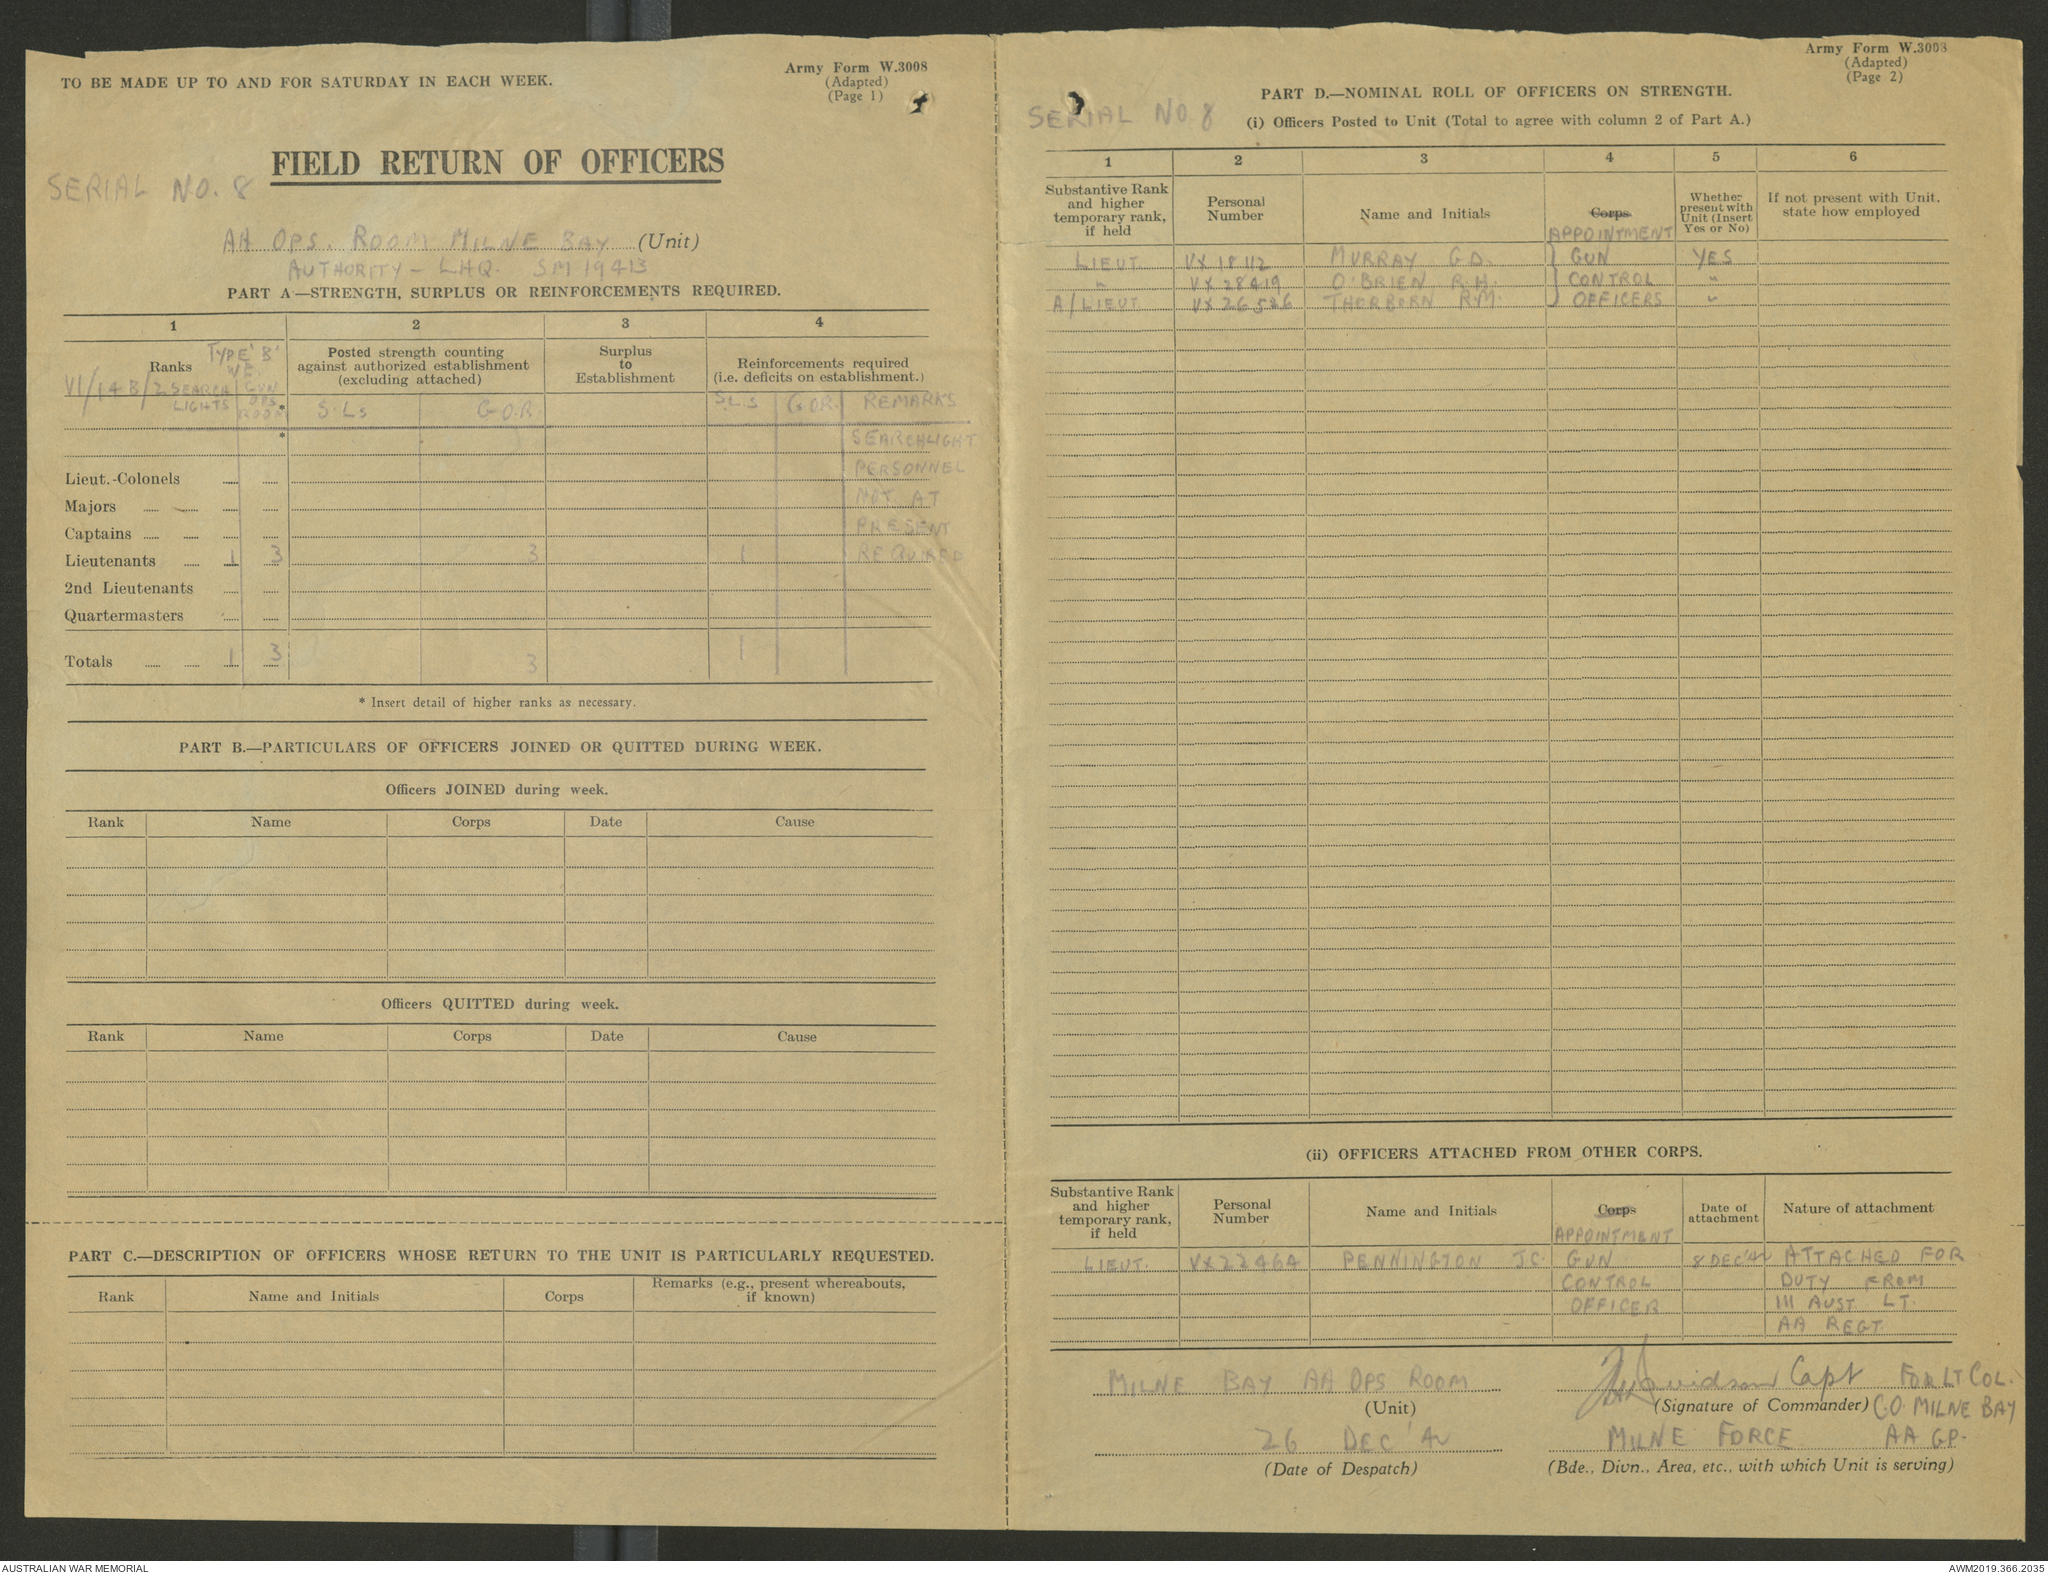 TO BE MADE UP TO AND FOR SATURDAY IN EACH WEEK.
Army Form W.3008
(Adapted)
(Page 1)
FIELD RETURN OF OFFICERS
SERIAL NO. 8
AA OPS. ROOM MILNE BAY (Unit)
AUTHORITY - LHQ. SM 19413
PART A—STRENGTH, SURPLUS OR REINFORCEMENTS REQUIRED.
1 2 3 4
Ranks
TYPE 'B'
W.E.
VI/14B/2 SEARCH LIGHTS
GUN OPS ROOM *
Posted strength counting
against authorized establishment
(excluding attached)
Surplus
to
Establishment
Reinforcements required
(i.e. deficits on establishment.)
S.Ls G.O.R. S.L.s G.O.R. REMARKS
*
SEARCHLIGHT
PERSONNEL
NOT AT
PRESENT
REQUIRED
Lieut.-Colonels
Majors
Captains
Lieutenants 1 3 3 1
2nd Lieutenants
Quartermasters
Totals 1 3 3 1
* Insert detail of higher ranks as necessary.
PART B.—PARTICULARS OF OFFICERS JOINED OR QUITTED DURING WEEK.
Officers JOINED during week.
Rank Name Corps Date Cause
Officers QUITTED during week.
Rank Name Corps Date Cause
PART C.—DESCRIPTION OF OFFICERS WHOSE RETURN TO THE UNIT IS PARTICULARLY REQUESTED.
Rank Name and Initials Corps Remarks (e.g., present whereabouts,
if known)
Army Form W.3008
(Adapted)
(Page 2)
SERIAL NO. 8
PART D.—NOMINAL ROLL OF OFFICERS ON STRENGTH.
(i) Officers Posted to Unit (Total to agree with column 2 of Part A.)
1 2 3 4 5 6
Substantive Rank
and higher
temporary rank,
if held
Personal
Number
Name and Initials
Corps
APPOINTMENT
Whether
present with
Unit (Insert
Yes or No)
If not present with Unit.
state how employed
LIEUT. VX 18112 MURRAY G.D. GUN YES
" VX 28419 O'BRIEN R.H. CONTROL "
A/LIEUT VX 26526 THORBURN R.M. OFFICERS "
(ii) OFFICERS ATTACHED FROM OTHER CORPS.
Substantive Rank
and higher
temporary rank,
if held
Personal
Number
Name and Initials
Corps
APPOINTMENT
Date of
attachment
Nature of attachment
LIEUT. VX22464 PENNINGTON J.C. GUN 8 DEC '42 ATTACHED FOR
CONTROL DUTY FROM
OFFICER 111 AUST LT.
AA REGT
MILNE BAY AA OPS ROOM
(Unit)
Davidson Capt FOR LT COL.
(Signature of Commander) C.O. MILNE BAY
26 DEC '42
(Date of Despatch)
MILNE FORCE AA GP.
(Bde., Divn., Area, etc., with which Unit is serving)
AUSTRALIAN WAR MEMORIAL
AWM2019.366.2035